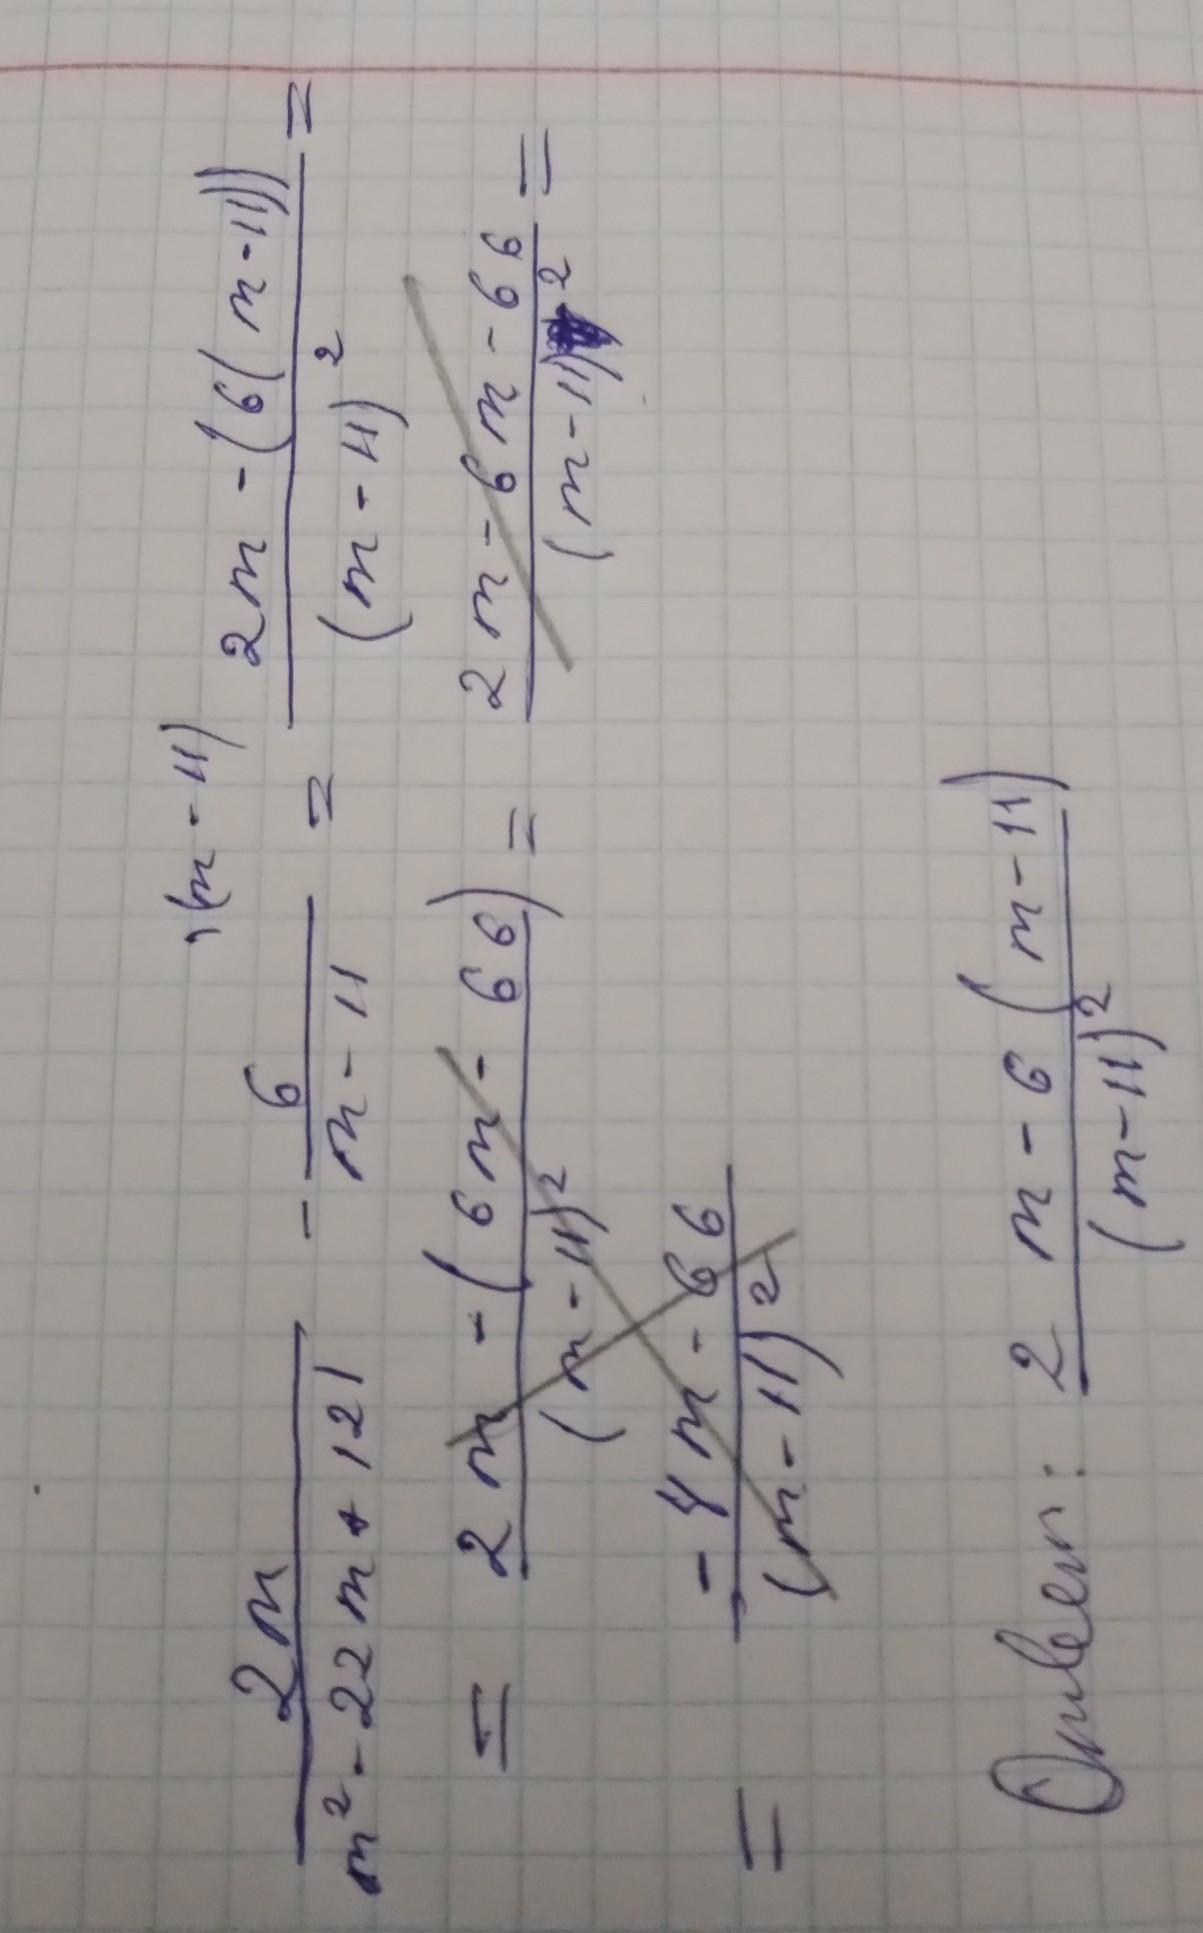 2m / (m² - 22m + 121) - 6 / (m - 11) \(m - 11) = (2m - (6(m - 11))) / (m - 11)² =
= (2m - (6m - 66)) / (m - 11)² = (2m - 6m - 66) / (m - 11)² =
= (-4m - 66) / (m - 11)²
Ответ: (2m - 6(m - 11)) / (m - 11)²